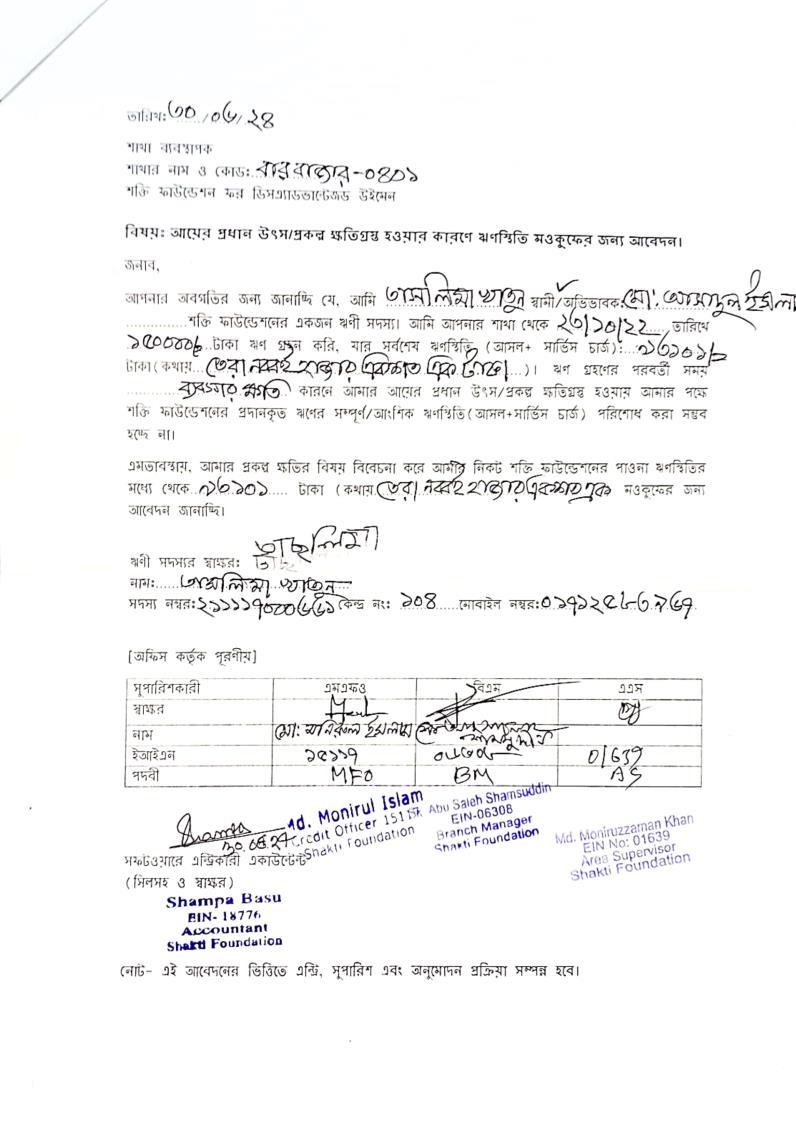 তারিখঃ ৩০/০৬/২৪
শাখা ব্যবস্থাপক
শাখার নাম ও কোড: বারবাজার-০৪০১
শক্তি ফাউন্ডেশন ফর ডিসএ্যাডভান্টেজড উইমেন
বিষয়: আয়ের প্রধান উৎস/প্রকল্প ক্ষতিগ্রস্ত হওয়ার কারণে ঋণস্থিতি মওকুফের জন্য আবেদন।
জনাব,
আপনার অবগতির জন্য জানাচ্ছি যে, আমি তাসলিমা খাতুন স্বামী/অভিভাবক মো: আসাদুল ইসলা
শক্তি ফাউন্ডেশনের একজন ঋণী সদস্য। আমি আপনার শাখা থেকে ২৩/১০/২২ তারিখে
১৫০০০০/- টাকা ঋণ গ্রহন করি, যার সর্বশেষ ঋণস্থিতি (আসল+ সার্ভিস চার্জ): ৯৩১০১/-
টাকা (কথায় তেরানব্বই হাজার একশত এক টাকা)। ঋণ গ্রহণের পরবর্তী সময়
ব্যবসার ক্ষতি কারনে আমার আয়ের প্রধান উৎস/প্রকল্প ক্ষতিগ্রস্ত হওয়ায় আমার পক্ষে
শক্তি ফাউন্ডেশনের প্রদানকৃত ঋণের সম্পূর্ণ/আংশিক ঋণস্থিতি (আসল+সার্ভিস চার্জ) পরিশোধ করা সম্ভব
হচ্ছে না।
এমতাবস্থায়, আমার প্রকল্প ক্ষতির বিষয় বিবেচনা করে আমার নিকট শক্তি ফাউন্ডেশনের পাওনা ঋণস্থিতির
মধ্যে থেকে ৯৩১০১ টাকা (কথায় তেরানব্বই হাজার একশত এক মওকুফের জন্য
আবেদন জানাচ্ছি।
ঋণী সদস্যর স্বাক্ষর: তাছলিমা
নাম: তাসলিমা খাতুন
সদস্য নম্বর: ২১১১১৭০০০৬৫১ কেন্দ্র নং: ১০৪ মোবাইল নম্বর: ০১৭১২৫৮৩৯৬৭
[অফিস কর্তৃক পূরণীয়]
সুপারিশকারী এমএফও বিএম এএস
স্বাক্ষর
নাম মো: মনিরুল ইসলাম
ইআইএন ১৫১১৭ ০৬৩০৮ 01639
পদবী MFO BM AS
Shampa
30.06.24
সফটওয়ারে এন্ট্রিকারী একাউন্টেন্ট
(সিলসহ ও স্বাক্ষর)
Md. Monirul Islam
Credit Officer
Shakti Foundation
Abu Saleh Shamsuddin
EIN-06308
Branch Manager
Shakti Foundation
Md. Moniruzzaman Khan
EIN No: 01639
Area Supervisor
Shakti Foundation
Shampa Basu
EIN- 18776
Accountant
Shakti Foundation
নোট- এই আবেদনের ভিত্তিতে এন্ট্রি, সুপারিশ এবং অনুমোদন প্রক্রিয়া সম্পন্ন হবে।